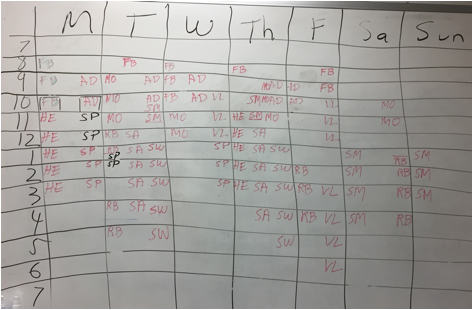 M T W Th F Sa Sun
7
8 FB FB FB FB FB
9 FB AD MO AD FB AD MO AD FB
10 FB AD MO AD SM FB AD VL SM MO AD VL MO
11 HE SP MO SM MO VL HE SM MO VL MO
12 HE SP RB SA MO VL HE SA VL
1 HE SP RB SP SA SW SP HE SA SW SM RB SM
2 HE SP SP SA SW SP HE SA SW RB VL SM RB SM
3 HE SP SA SW SP HE SA SW RB VL SM RB SM
4 RB SA SW SA SW RB VL SM RB
5 RB SW SW VL
6 VL
7